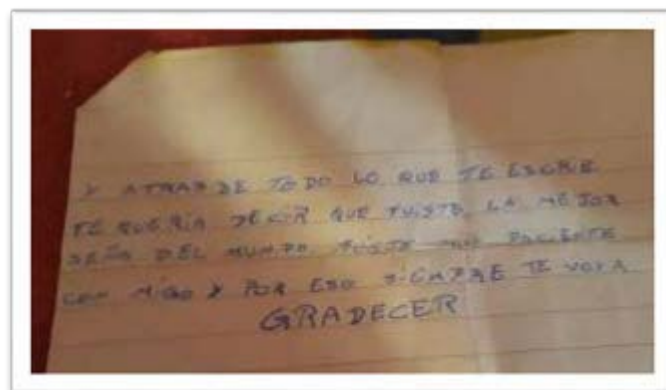 Y ATRAS DE TODO LO QUE TE ESCRIBÍ
TE QUERÍA DECIR QUE FUISTE LA MEJOR
SEÑO DEL MUNDO. FUISTE MUY PACIENTE
CON MIGO Y POR ESO SIEMPRE TE VOY A
GRADECER